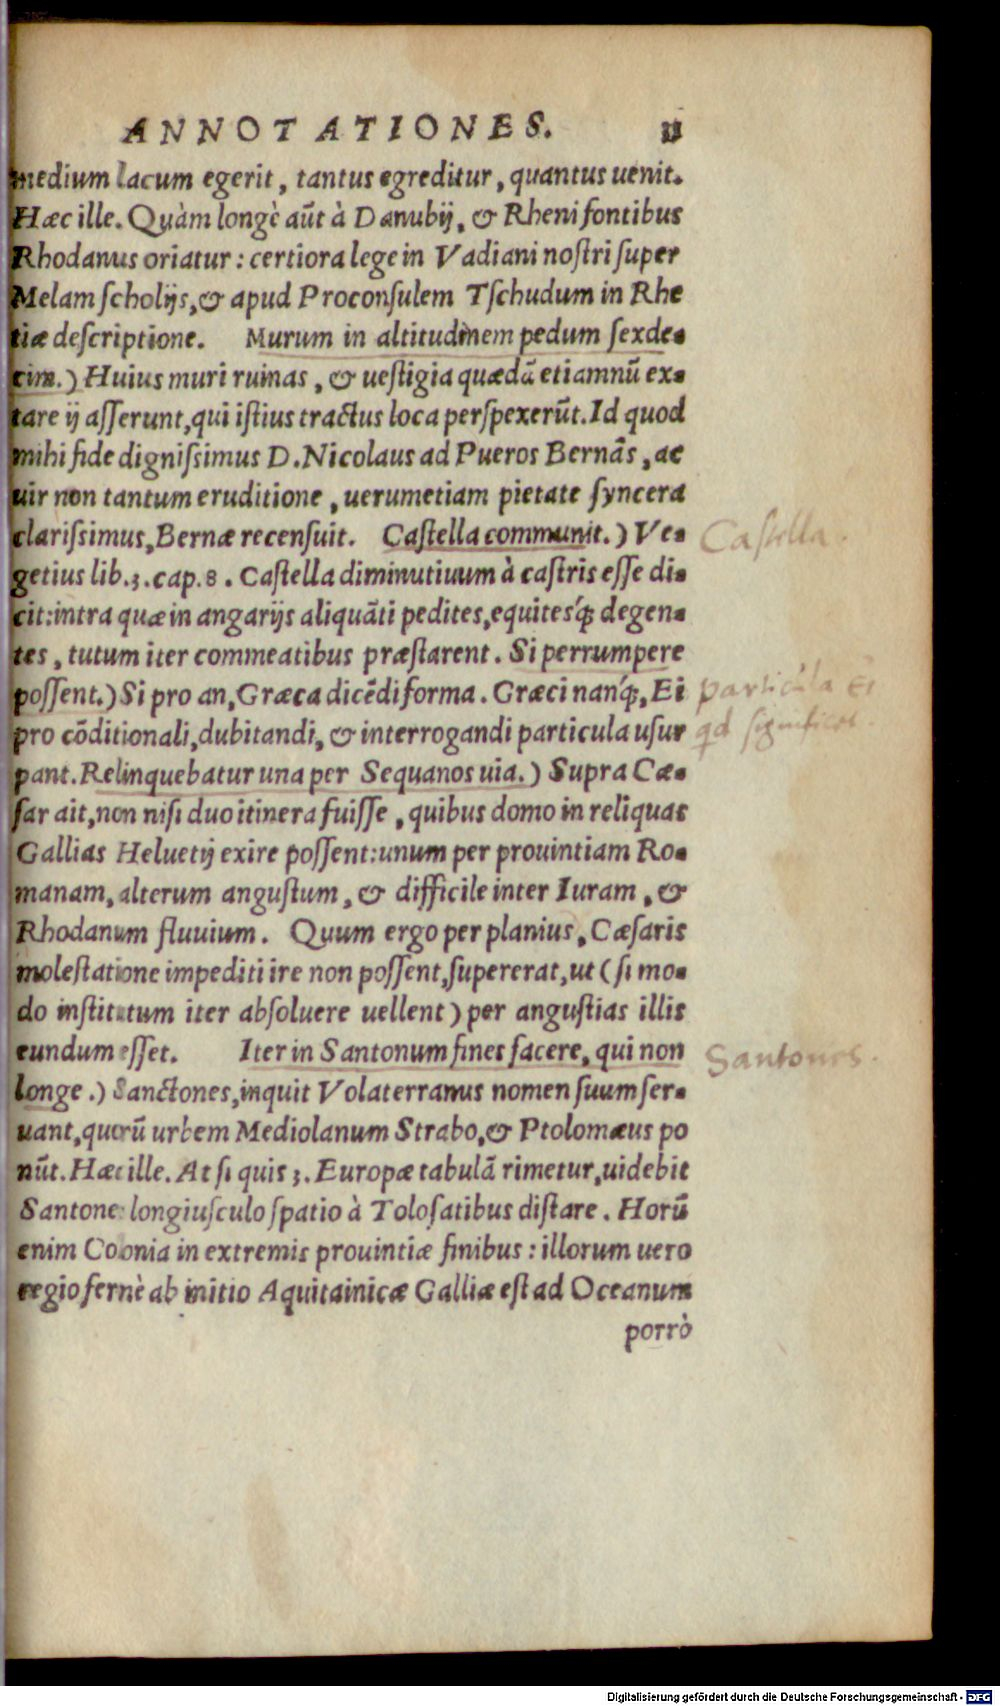 ANNOTATIONES. 11
medium lacum egerit, tantus egreditur, quantus uenit.
Hæc ille. Quàm longè aūt à Danubij, & Rheni fontibus
Rhodanus oriatur: certiora lege in Vadiani nostri super
Melam scholijs, & apud Proconsulem Tschudum in Rhe
tiæ descriptione. Murum in altitudinem pedum sexde-
cim.) Huius muri ruinas, & uestigia quædā etiamnū ex-
tare ij asserunt, qui istius tractus loca perspexerūt. Id quod
mihi fide dignissimus D. Nicolaus ad Pueros Bernās, ac
uir non tantum eruditione, uerumetiam pietate syncera
clarissimus, Bernæ recensuit. Castella communit.) Ve-
Castella.
getius lib.3.cap.8. Castella diminutiuum à castris esse di-
cit: intra quæ in angarijs aliquāti pedites, equitesq́ꝫ degen-
tes, tutum iter commeatibus præstarent. Si perrumpere
possent.) Si pro an, Græca dicēdi forma. Græci nanq́ꝫ, Ei
particula Ei
pro cōditionali, dubitandi, & interrogandi particula usur
qd significet.
pant. Relinquebatur una per Sequanos uia.) Supra Cæ-
sar ait, non nisi duo itinera fuisse, quibus domo in reliquas
Gallias Heluetij exire possent: unum per prouintiam Ro-
manam, alterum angustum, & difficile inter Iuram, &
Rhodanum fluuium. Quum ergo per planius, Cæsaris
molestatione impediti ire non possent, supererat, ut (si mo-
do institutum iter absoluere uellent) per angustias illis
eundum esset. Iter in Santonum fines facere, qui non
Santones.
longe.) Sanctones, inquit Volaterranus nomen suum ser-
uant, quorū urbem Mediolanum Strabo, & Ptolomæus po
nūt. Hæc ille. At si quis 3. Europæ tabulā rimetur, uidebit
Santones longiusculo spatio à Tolosatibus distare. Horū
enim Colonia in extremis prouintiæ finibus: illorum uero
regio fernè ab initio Aquitainicæ Galliæ est ad Oceanum
porrò
Digitalisierung gefördert durch die Deutsche Forschungsgemeinschaft - DFG